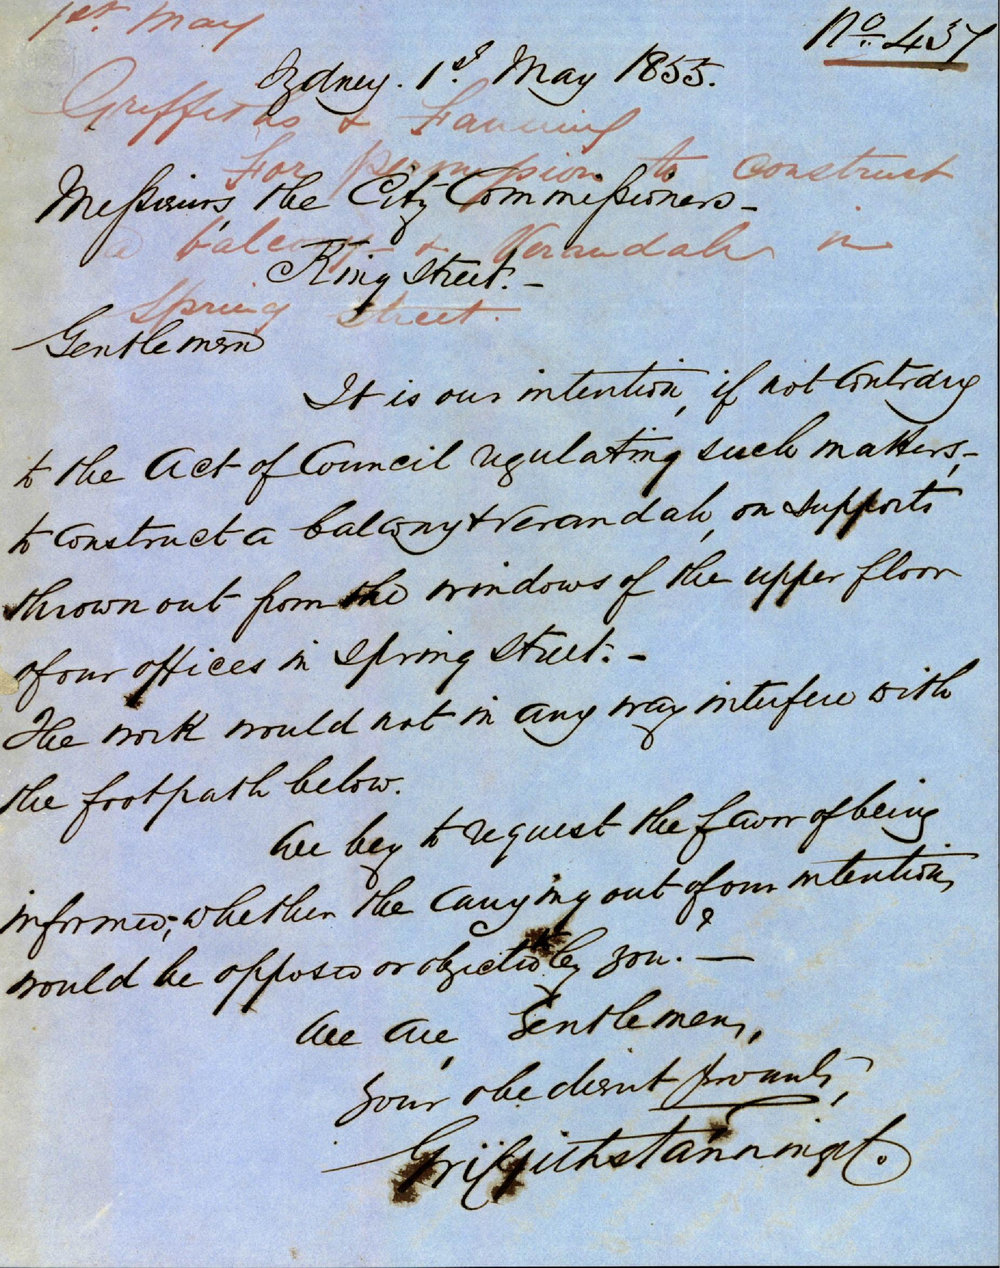 1st May
No. 437
Sydney. 1st May 1855.
Griffiths & Fanning
For permission to construct
Messieurs, the City Commissioners—
a balcony & Verandah in
King Street.—
Spring Street.
Gentlemen
It is our intention, if not contrary
to the Act of Council regulating such matters,—
to construct a balcony & Verandah, on supports
thrown out from the windows of the upper floor
of our offices in Spring Street.—
The work would not in any way interfere with
the footpath below.
We beg to request the favor of being
informed; whether the carrying out of our intention,
would be opposed or objected to by you?—
We are, Gentlemen,
Your obedient servants,
Griffiths Fanning & Co.